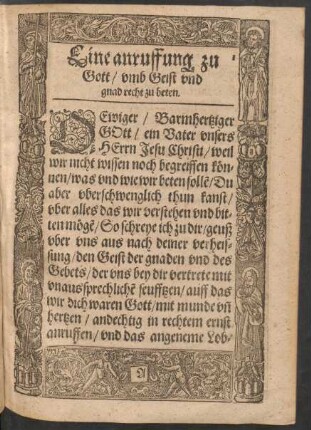 Eine anruffung zu
Gott / vmb Geist vnd
gnad recht zu beten.
OEwiger / Barmhertziger
GOtt / ein Vater vnsers
HErrn Jesu Christi / weil
wir nicht wissen noch begreiffen kön-
nen / was vnd wie wir beten sollē / Du
aber vberschwenglich thun kanst /
vber alles das wir verstehen vnd bit-
ten mögē / So schreye ich zu dir / geusz
vber vns aus nach deiner verheis-
sung / den Geist der gnaden vnd des
Gebets / der vns bey dir vertrete mit
vnaussprechlichē seufftzen / auff das
wir dich waren Gott / mit munde vñ
hertzen / andechtig in rechtem ernst
anruffen / vnd das angeneme Lob-
A